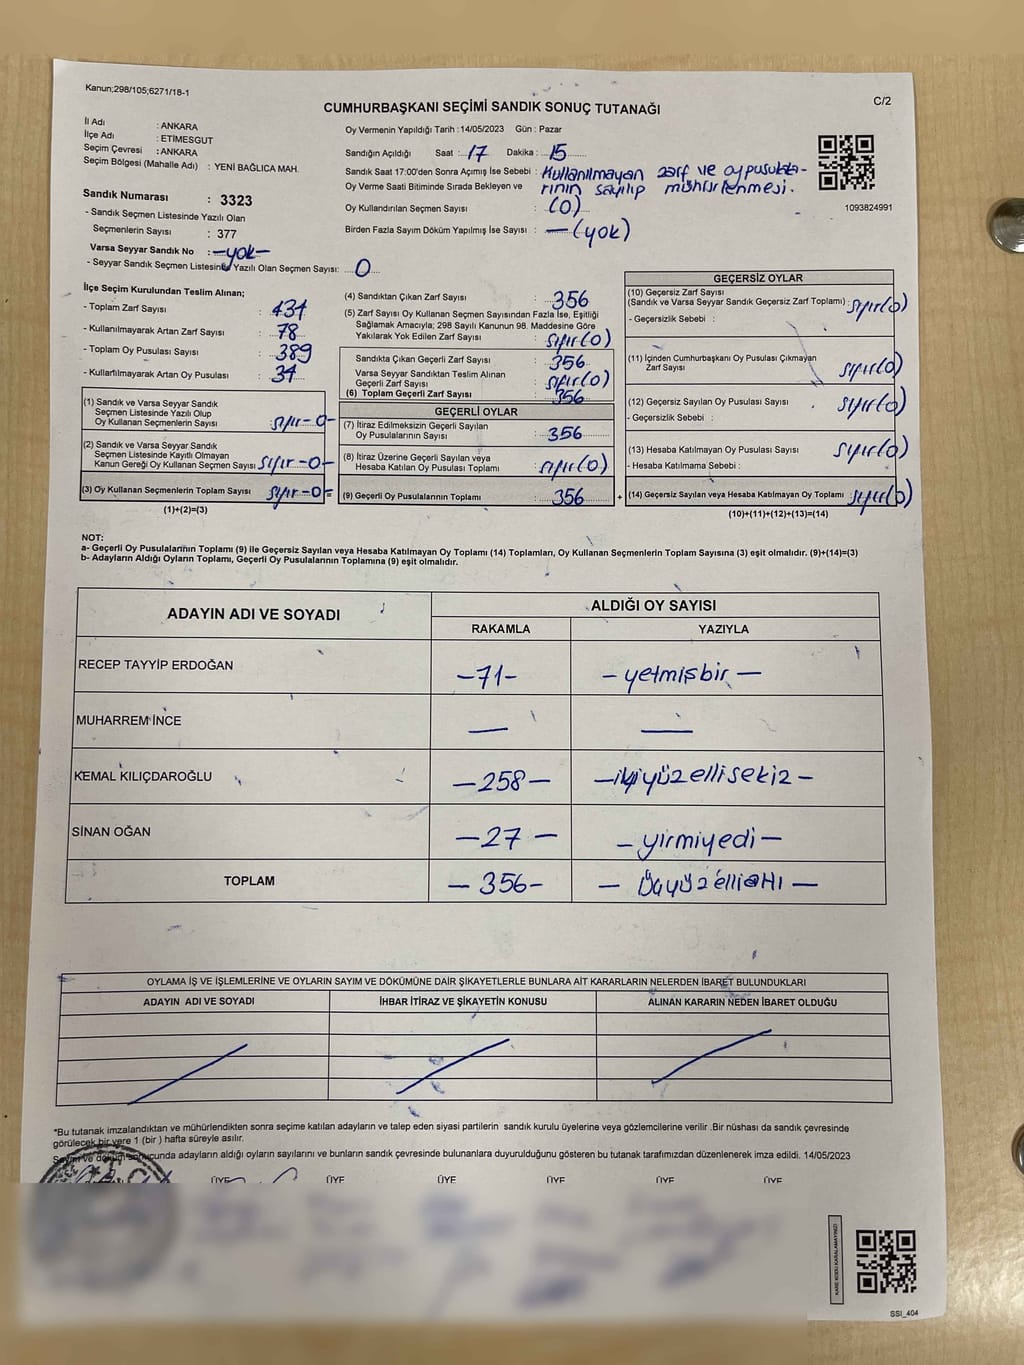 Kanun;298/105;6271/18-1
CUMHURBAŞKANI SEÇİMİ SANDIK SONUÇ TUTANAĞI
C/2
İl Adı : ANKARA
İlçe Adı : ETİMESGUT
Seçim Çevresi : ANKARA
Seçim Bölgesi (Mahalle Adı) : YENİ BAĞLICA MAH.
Sandık Numarası : 3323
- Sandık Seçmen Listesinde Yazılı Olan
Seçmenlerin Sayısı : 377
Varsa Seyyar Sandık No : -yok-
- Seyyar Sandık Seçmen Listesinde Yazılı Olan Seçmen Sayısı: 0
Oy Vermenin Yapıldığı Tarih : 14/05/2023 Gün : Pazar
Sandığın Açıldığı Saat : 17 Dakika : 15
Sandık Saat 17:00'den Sonra Açımış İse Sebebi : Kullanılmayan zarf ve oy pusulala-
Oy Verme Saati Bitiminde Sırada Bekleyen ve rının sayılıp mühürlenmesi.
Oy Kullandırılan Seçmen Sayısı : (0)
Birden Fazla Sayım Döküm Yapılmış İse Sayısı : —(yok)
1093824991
İlçe Seçim Kurulundan Teslim Alınan;
- Toplam Zarf Sayısı : 434
- Kullanılmayarak Artan Zarf Sayısı : 78
- Toplam Oy Pusulası Sayısı : 389
- Kullanılmayarak Artan Oy Pusulası : 34
(1) Sandık ve Varsa Seyyar Sandık
Seçmen Listesinde Yazılı Olup
Oy Kullanan Seçmenlerin Sayısı : sıfır-0-
(2) Sandık ve Varsa Seyyar Sandık
Seçmen Listesinde Kayıtlı Olmayan
Kanun Gereği Oy Kullanan Seçmen Sayısı sıfır-0-
(3) Oy Kullanan Seçmenlerin Toplam Sayısı sıfır-0- =
(1)+(2)=(3)
(4) Sandıktan Çıkan Zarf Sayısı : 356
(5) Zarf Sayısı Oy Kullanan Seçmen Sayısından Fazla İse, Eşitliği
Sağlamak Amacıyla; 298 Sayılı Kanunun 98. Maddesine Göre
Yakılarak Yok Edilen Zarf Sayısı : sıfır(0)
Sandıkta Çıkan Geçerli Zarf Sayısı : 356
Varsa Seyyar Sandıktan Teslim Alınan
Geçerli Zarf Sayısı : sıfır(0)
(6) Toplam Geçerli Zarf Sayısı : 356
GEÇERLİ OYLAR
(7) İtiraz Edilmeksizin Geçerli Sayılan
Oy Pusulalarının Sayısı : 356
(8) İtiraz Üzerine Geçerli Sayılan veya
Hesaba Katılan Oy Pusulası Toplamı : sıfır(0)
(9) Geçerli Oy Pusulalarının Toplamı : 356 +
GEÇERSİZ OYLAR
(10) Geçersiz Zarf Sayısı
(Sandık ve Varsa Seyyar Sandık Geçersiz Zarf Toplamı) : sıfır(0)
- Geçersizlik Sebebi :
(11) İçinden Cumhurbaşkanı Oy Pusulası Çıkmayan
Zarf Sayısı : sıfır(0)
(12) Geçersiz Sayılan Oy Pusulası Sayısı : sıfır(0)
- Geçersizlik Sebebi :
(13) Hesaba Katılmayan Oy Pusulası Sayısı : sıfır(0)
- Hesaba Katılmama Sebebi :
(14) Geçersiz Sayılan veya Hesaba Katılmayan Oy Toplamı : sıfır(0)
(10)+(11)+(12)+(13)=(14)
NOT:
a- Geçerli Oy Pusulalarının Toplamı (9) ile Geçersiz Sayılan veya Hesaba Katılmayan Oy Toplamı (14) Toplamları, Oy Kullanan Seçmenlerin Toplam Sayısına (3) eşit olmalıdır. (9)+(14)=(3)
b- Adayların Aldığı Oyların Toplamı, Geçerli Oy Pusulalarının Toplamına (9) eşit olmalıdır.
ADAYIN ADI VE SOYADI ALDIĞI OY SAYISI
RAKAMLA YAZIYLA
RECEP TAYYİP ERDOĞAN -71- - yetmişbir -
MUHARREM İNCE — —
KEMAL KILIÇDAROĞLU -258- -ikiyüzellisekiz -
SİNAN OĞAN -27- - yirmiyedi -
TOPLAM -356- - üçyüzellialtı -
OYLAMA İŞ VE İŞLEMLERİNE VE OYLARIN SAYIM VE DÖKÜMÜNE DAİR ŞİKAYETLERLE BUNLARA AİT KARARLARIN NELERDEN İBARET BULUNDUKLARI
ADAYIN ADI VE SOYADI İHBAR İTİRAZ VE ŞİKAYETİN KONUSU ALINAN KARARIN NEDEN İBARET OLDUĞU
*Bu tutanak imzalandıktan ve mühürlendikten sonra seçime katılan adayların ve talep eden siyasi partilerin sandık kurulu üyelerine veya gözlemcilerine verilir .Bir nüshası da sandık çevresinde
görülecek bir yere 1 (bir ) hafta süreyle asılır.
Sayım ve döküm sonucunda adayların aldığı oyların sayılarını ve bunların sandık çevresinde bulunanlara duyurulduğunu gösteren bu tutanak tarafımızdan düzenlenerek imza edildi. 14/05/2023
ÜYE ÜYE ÜYE ÜYE ÜYE ÜYE
KARE KODU KARALAMAYINIZ!
SSI_404